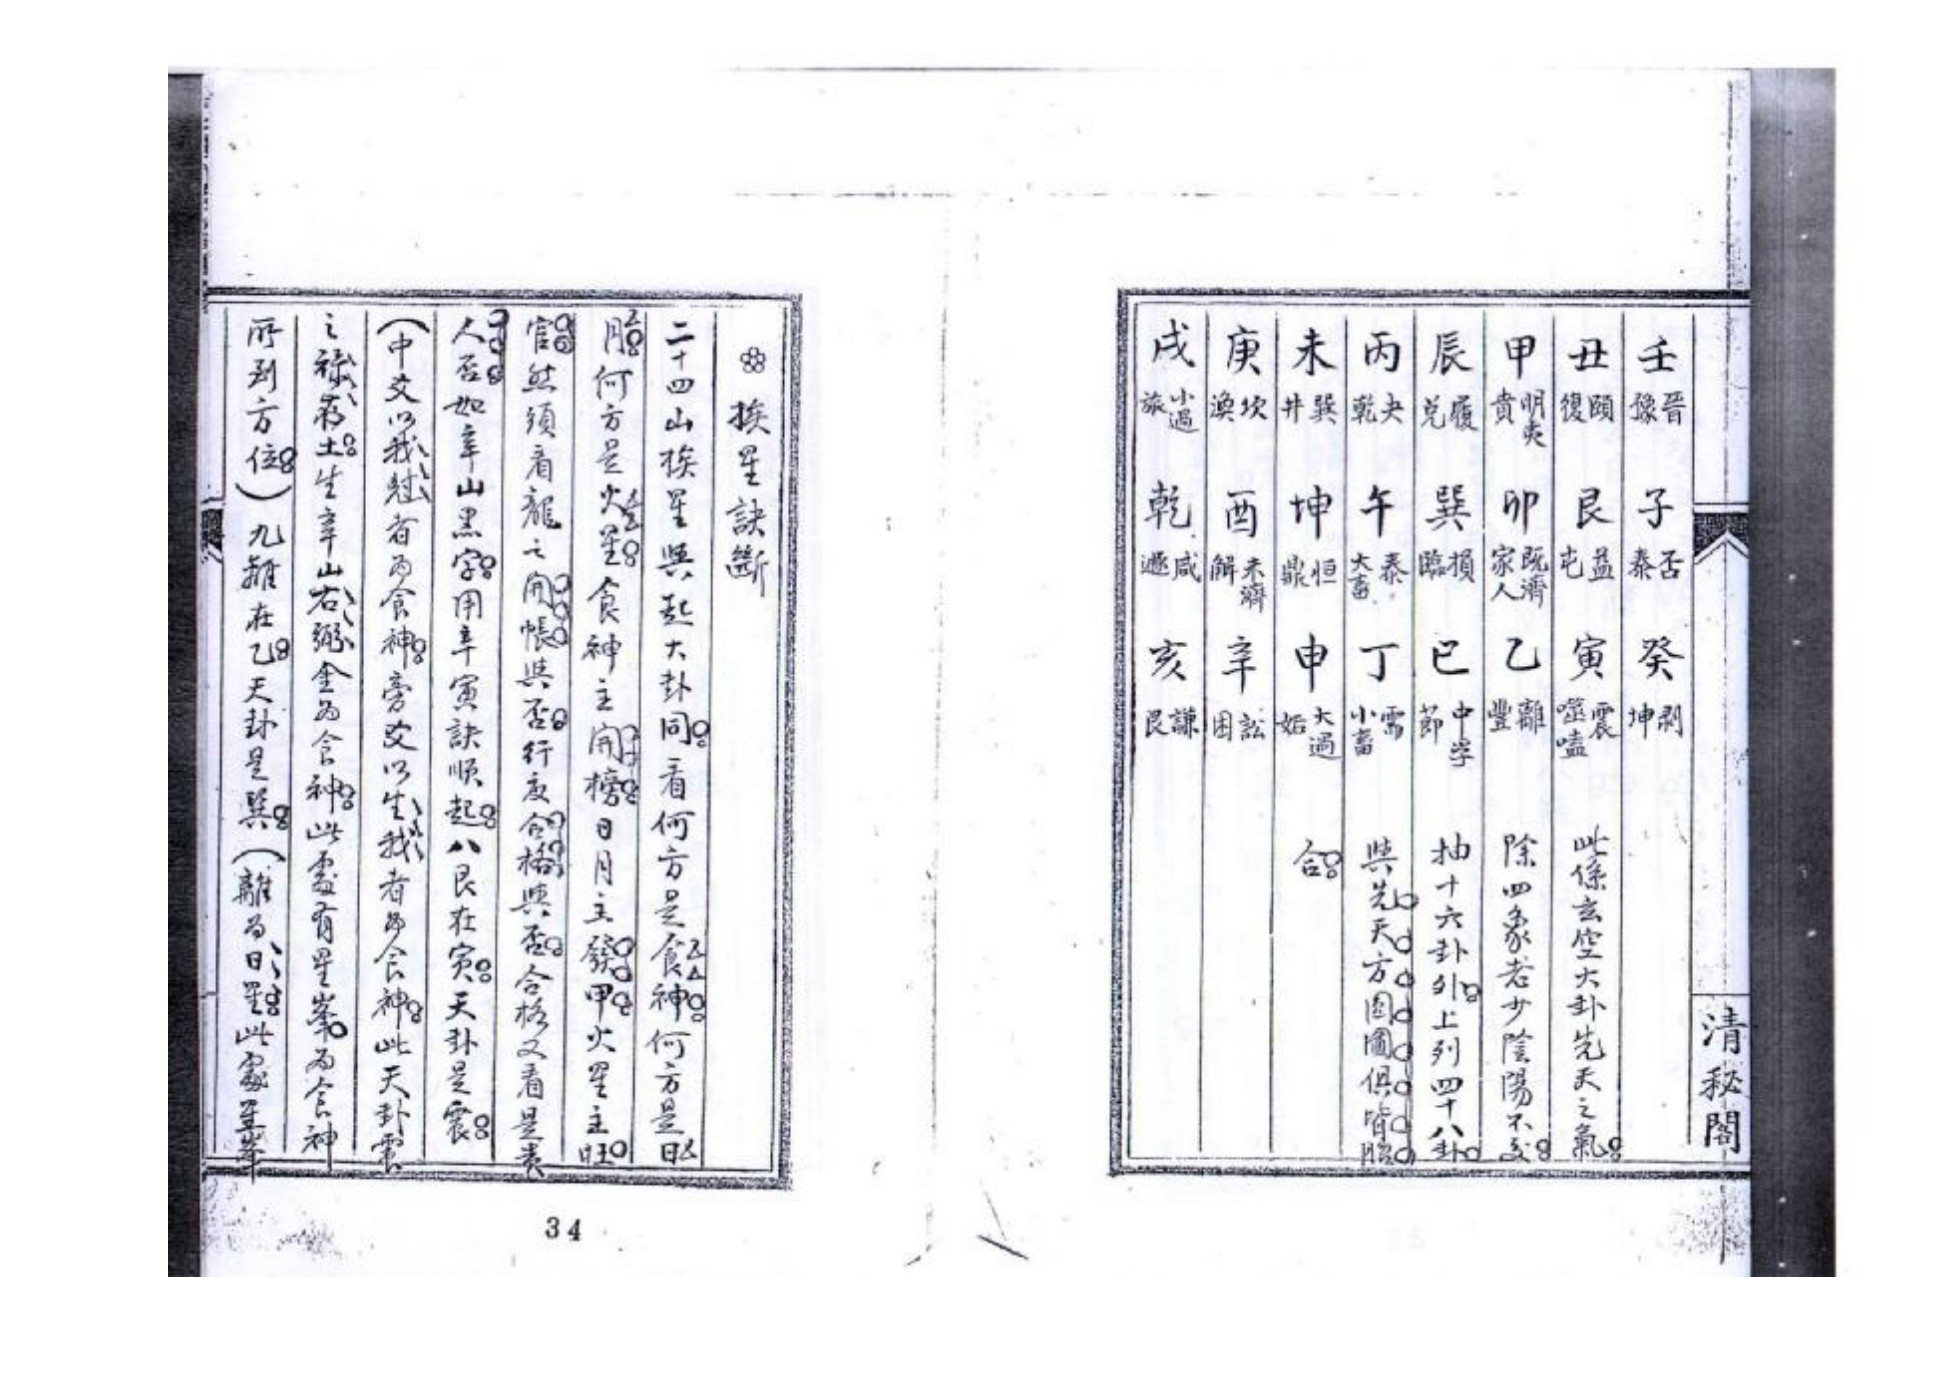 清秘閣
壬 晉豫 子 否泰 癸 剥坤
丑 頤復 艮 益屯 寅 震噬嗑 此係玄空大卦先天之氣
甲 明夷賁 卯 既濟家人 乙 離豐 除四象老少陰陽不交
辰 履兌 巽 損臨 巳 中孚節 抽十六卦外上列四十八卦
丙 夬乾 午 泰大畜 丁 需小畜 與先天方圓圖俱皆脗
未 巽井 坤 恒鼎 申 大過姤 合
庚 坎渙 酉 未濟解 辛 訟困
戌 小過旅 乾 咸遯 亥 謙艮
挨星訣斷
二十四山挨星與起大卦同看何方是食神何方是日
月何方是火星食神主開榜日月主發甲火星主旺
官然須看龍之開帳與否行度合格與否合格又看是貴
人否如辛山黑字用辛寅訣順起八艮在寅天卦是震
(中爻以我尅者為食神旁爻以生我者為食神此天卦震
之祿存土生辛山右弼金為食神此處有星峯為食神
所到方位)九離在乙天卦是巽(離為日星此處星峯
34